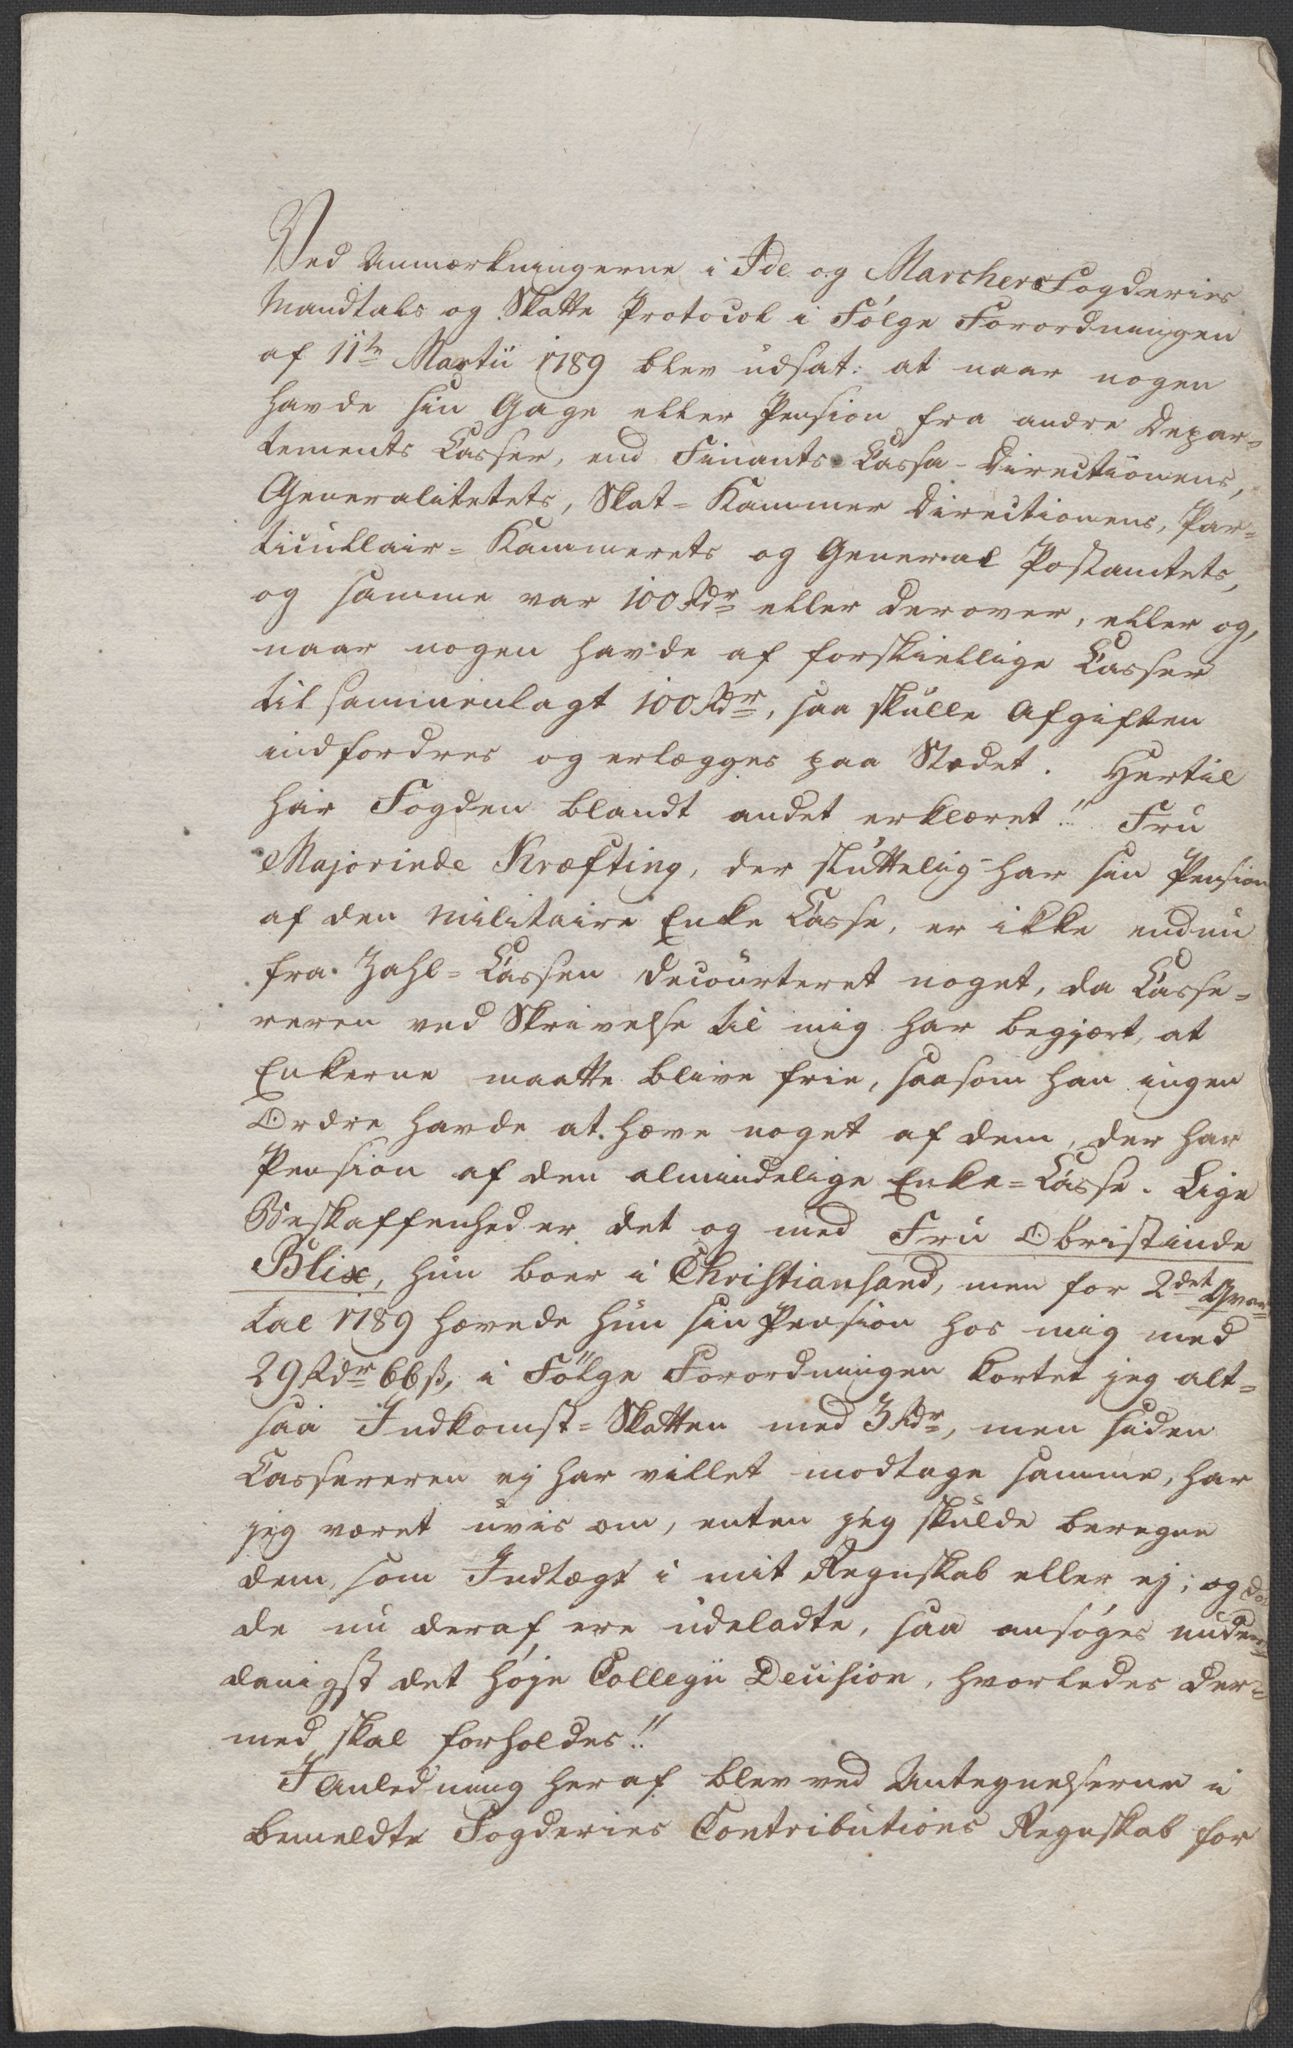 Ved Anmærkningerne i Ide og Marchers Fogderies
Mandtals og Skatte Protocol i Følge Forordningen
af 11te Martii 1789 blev udsat: at naar nogen
havde sin Gage eller Pension fra andre Depar=
tements Casser, end Finants Cassa-Directionens,
Generalitetets, Skat=Kammer Directionens, Par=
ticullair=Kammerets og General Postamtets,
og samme var 100 Rdr eller derover, eller og,
naar nogen havde af forskiellige Casser
tilsammenlagt 100 Rdr, saa skulle Afgiften
indfordres og erlægges paa Stædet. Hertil
har Fogden blandt andet erklæret: " Fru
Majorinde Kræfting, der sluttelig har sin Pension
af den militaire Enke Casse, er ikke endnu
fra Zahl=Cassen decourteret noget, da Casse=
reren ved Skrivelse til mig har begjært, at
Enkerne maatte blive frie, saasom han ingen
Ordre havde at hæve noget af dem, der har
Pension af den almindelige Enke=Casse. Lige
Beskaffenhed er det og med Fru Obristinde
Blix, hun boer i Christiansand, men for 2det Qvar=
tal 1789 hævede hun sin Pension hos mig med
29 Rdr 66 ß, i Følge Forordningen kortet jeg alt=
saa Indkomst=Skatten med 3 Rdr, men siden
Cassereren ej har villet modtage samme, har
jeg været uvis om, enten jeg skulde beregne
dem, som Indtægt i mit Regnskab eller ej; og da
de nu deraf ere udeladte, saa ansøges under=
danigst det høje Collegii Decision, hvorledes der=
med skal forholdes!"
I Anledning heraf blev ved Antegnelserne i
bemeldte Fogderies Contributions Regnskab for